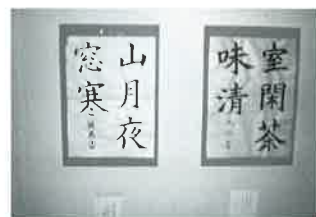 室閑茶
味清
山月夜
窓寒